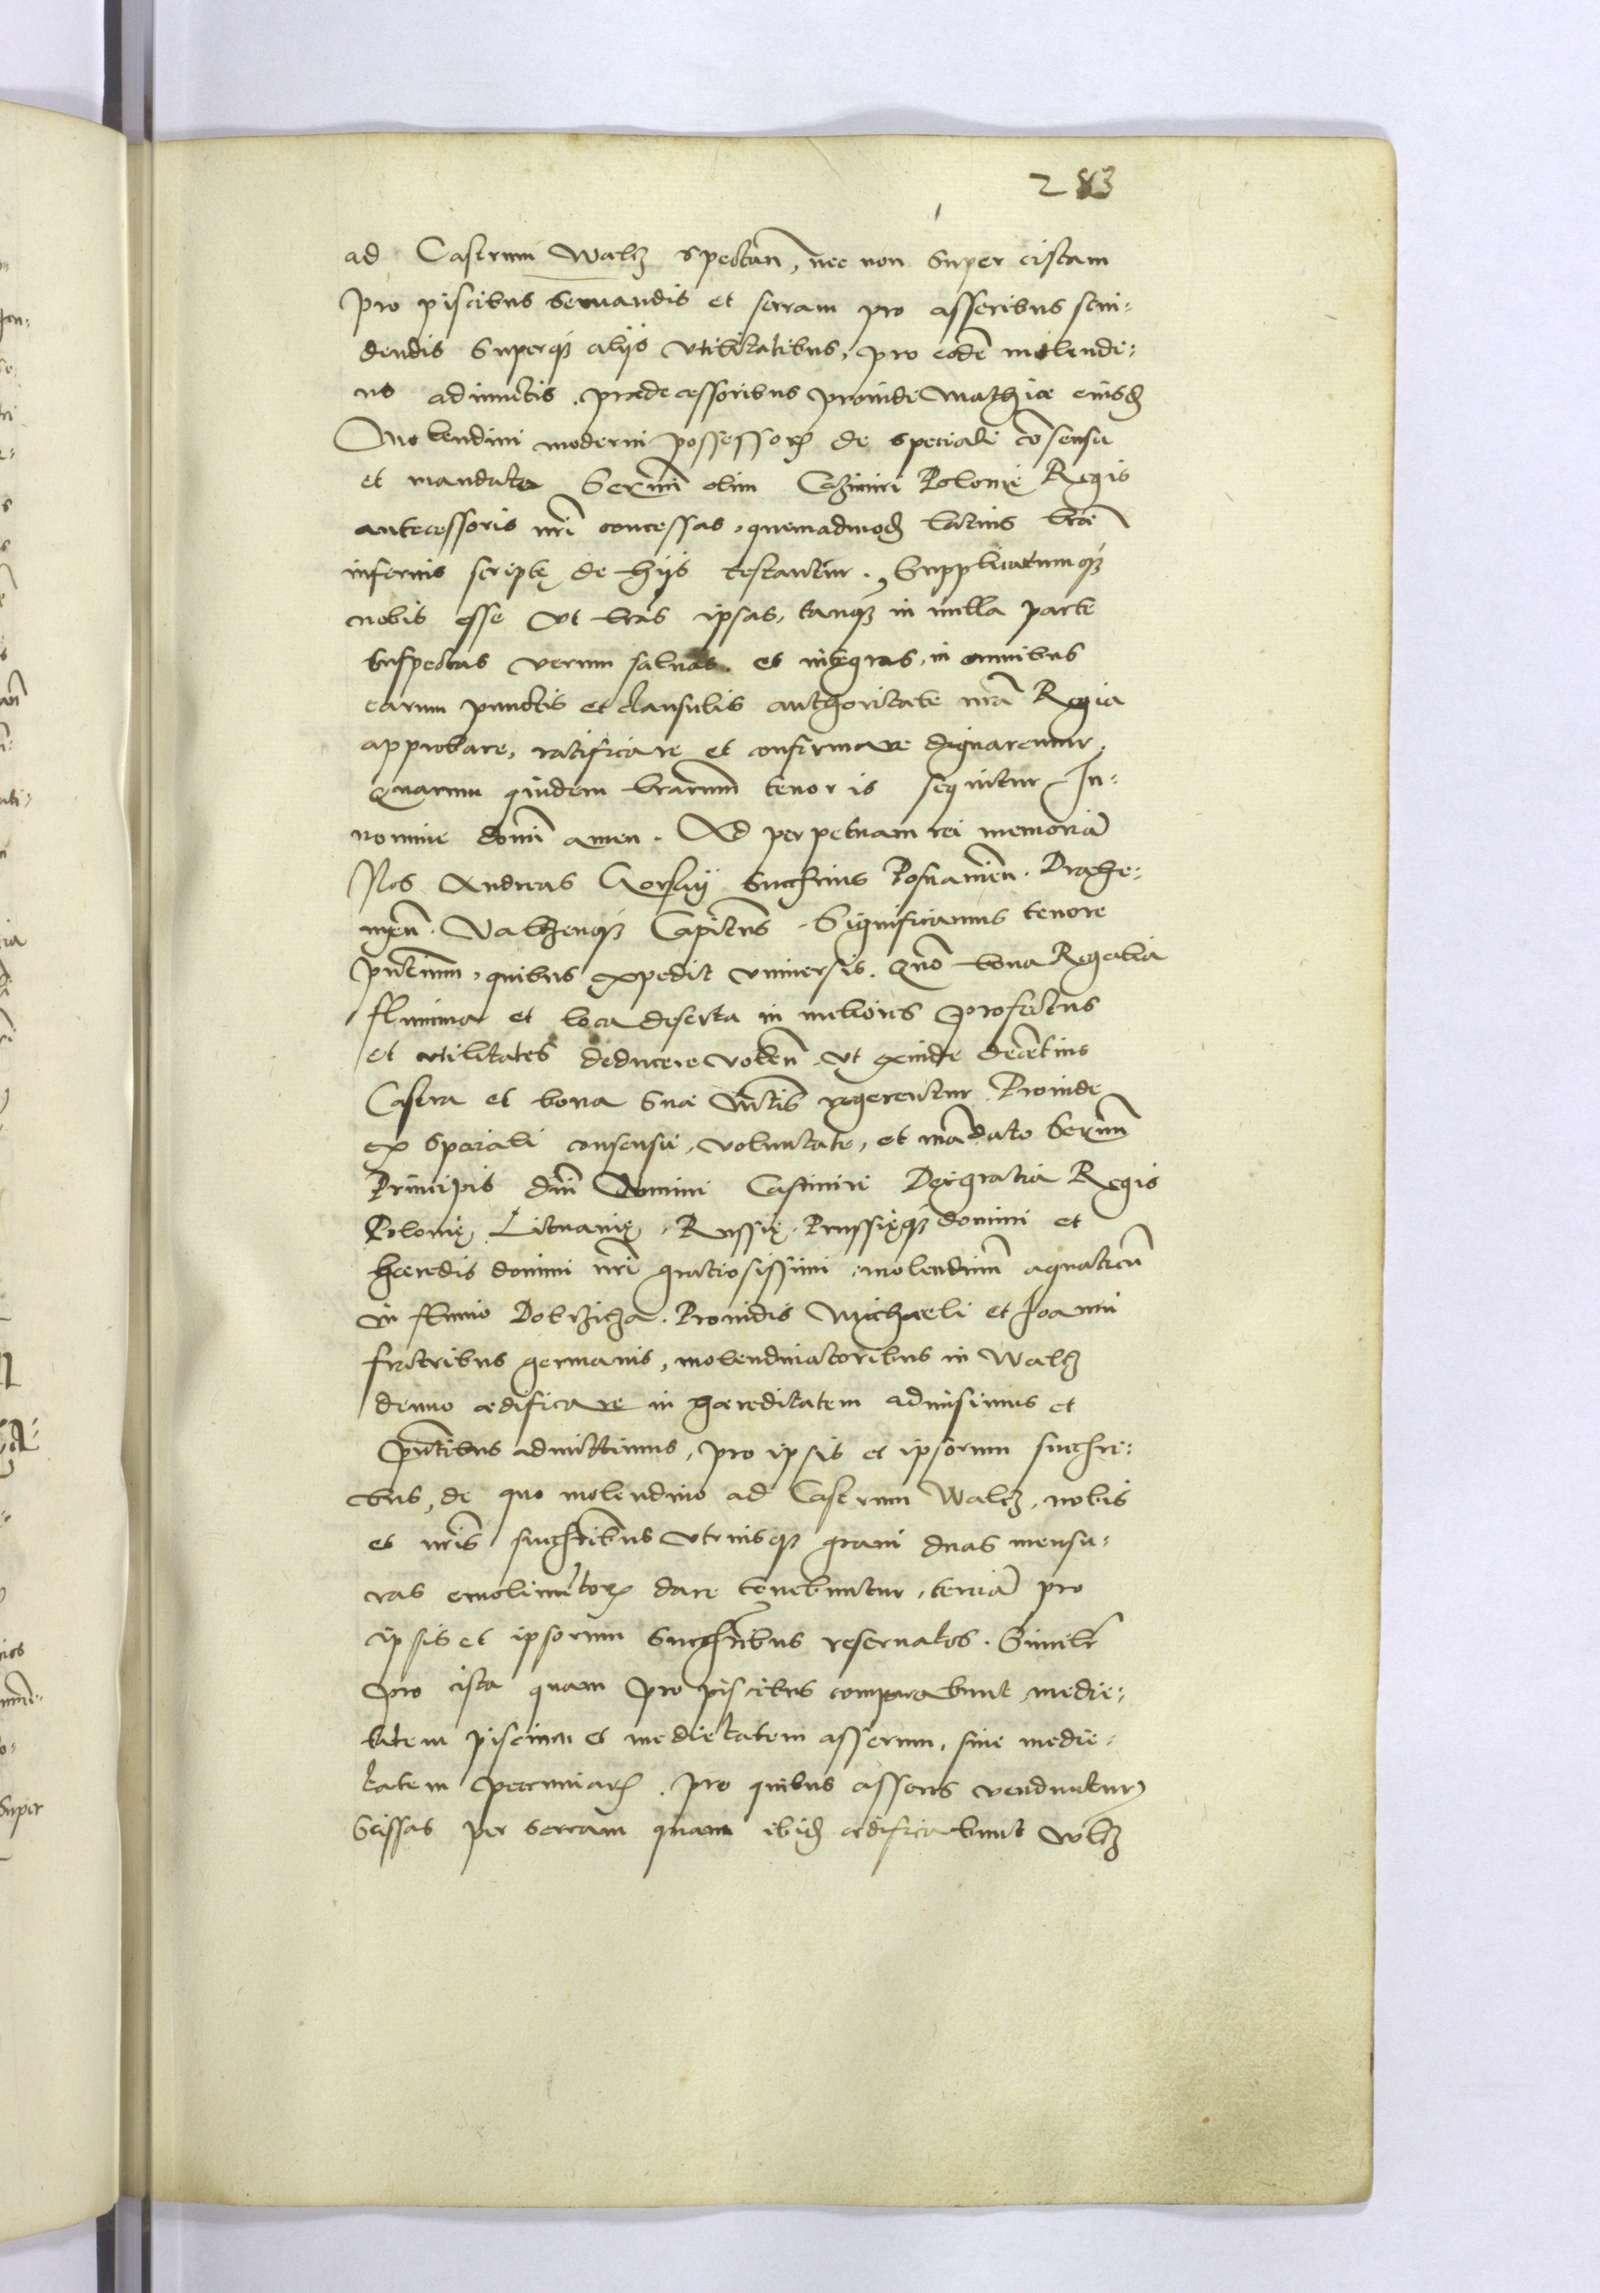 283
ad Castrum Walcz spectan̄, nec non super cistam
pro piscibus seruandis et serram pro asseribus scin-
dendis superq3 alijs vtilitatibus, pro eodē molendi-
no adiunctis, prædecessoribus prouidi Mathiæ eiusd
Molendini moderni possessor de speciali cōsensu
et mandato Serm̄i olim Cazimiri Polonię Regis
antecessoris nr̄i concessas, quemadmod latius lr̄æ
inferius scriptę de hijs testantur. Supplicatumq3
nobis esse Vt lr̄as ipsas, tanq3 in nulla parte
suspectas verum saluas et integras, in omnibus
earum punctis et clausulis authoritate nr̄a Regia
approbare, ratificare et confirmare dignaremur,
Quarum quidem lr̄arum tenor is sequitur In-
nomine domī amen. Ad perpetuam rei memoriā
Nos Andreas Gorsky succ̄rius Posnanien̄. Drahe-
men̄. Valczenq3 Capitn̄s. Significamus tenore
pn̄tium, quibus expedit vniuersis. Quō bona Regalia
flumina et loca deserta in meliores profectus
et vtilitates deducere volen̄. vt exinde decētius
Castra et bona Suæ Mtis regerentur. Proinde
ex speciali consensu, voluntate, et mādato Serm̄i
Principis dn̄i Domini Casimiri Dei gratia Regis
Polonię Lituanię, Russię. Prussięq3 domini et
hæredis domini nr̄i gratiosissimi, molendinū aquaticū
in fluuio Dobrzicza. Prouidis Michaeli et Joanni
fratribus germanis, molendinatoribus in Walcz
denuo ædificare in hæreditatem admisimus et
pn̄tibus admittimus, pro ipsis et ipsorum succ̄ri-
bus, de quo molendino ad Castrum Walcz, nobis
et nr̄is succ̄ribus vtriusq3 grani duas mensu-
ras emolimētor dare tenebuntur, terciā pro
ipsis et ipsorum succ̄ribus reseruatos. Similr̄
pro cista quam pro piscibus comparabunt, medie-
tatem piscium et medietatem asserum, siue medie-
tatem pecuniar, pro quibus asseres venduntur
Scissas per serram quam ibid ædificabunt